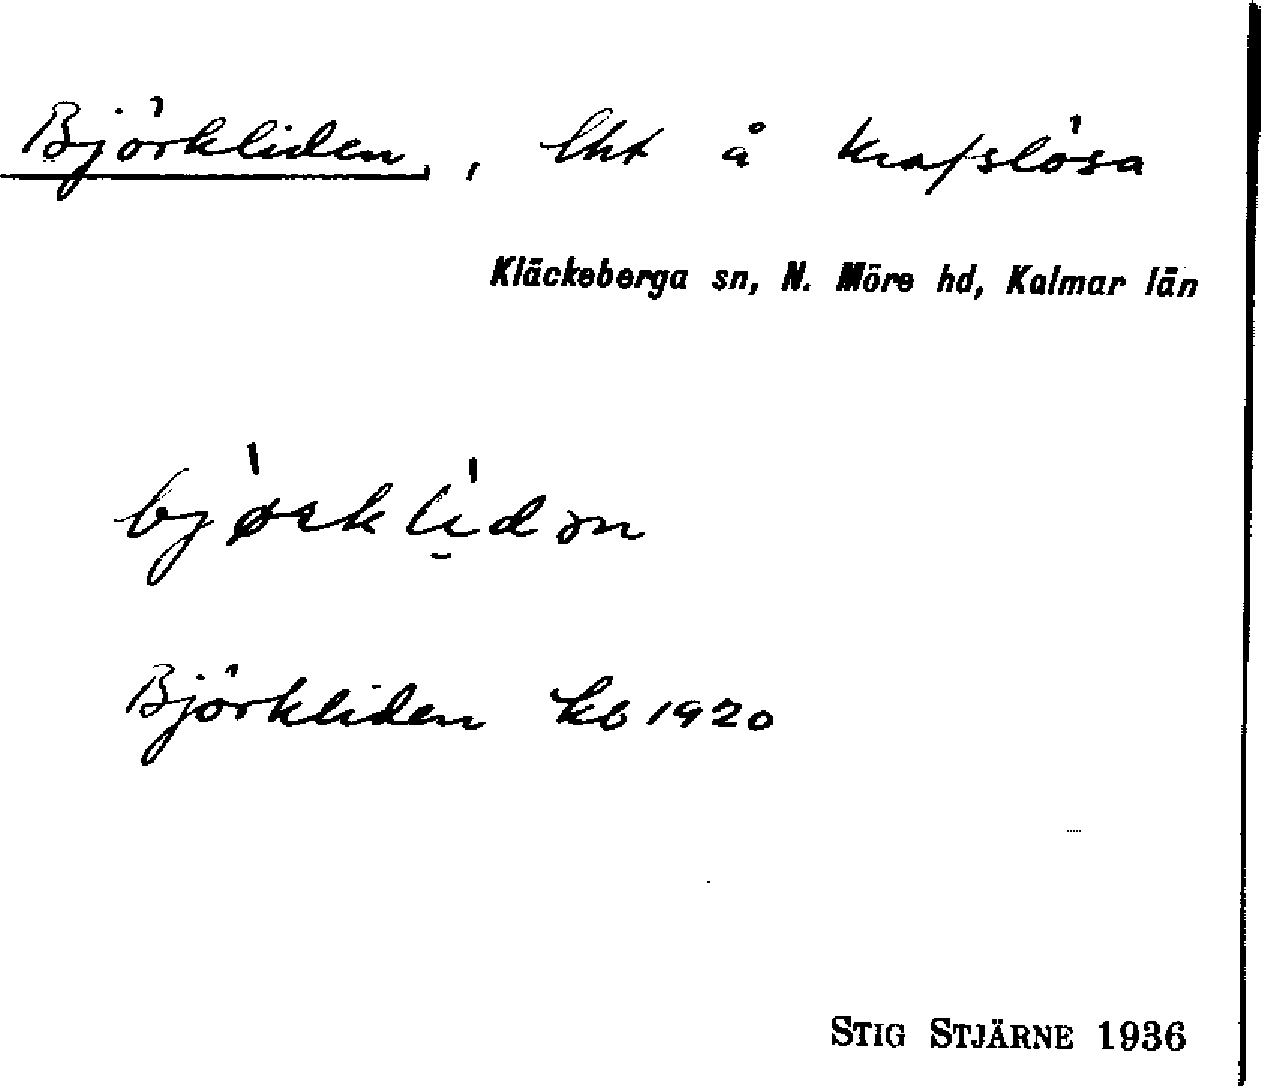 Björkliden, lht å Krafslösa
Kläckeberga sn, N. Möre hd, Kalmar län
bjørklidən
Björkliden kb 1920
STIG STJÄRNE 1936